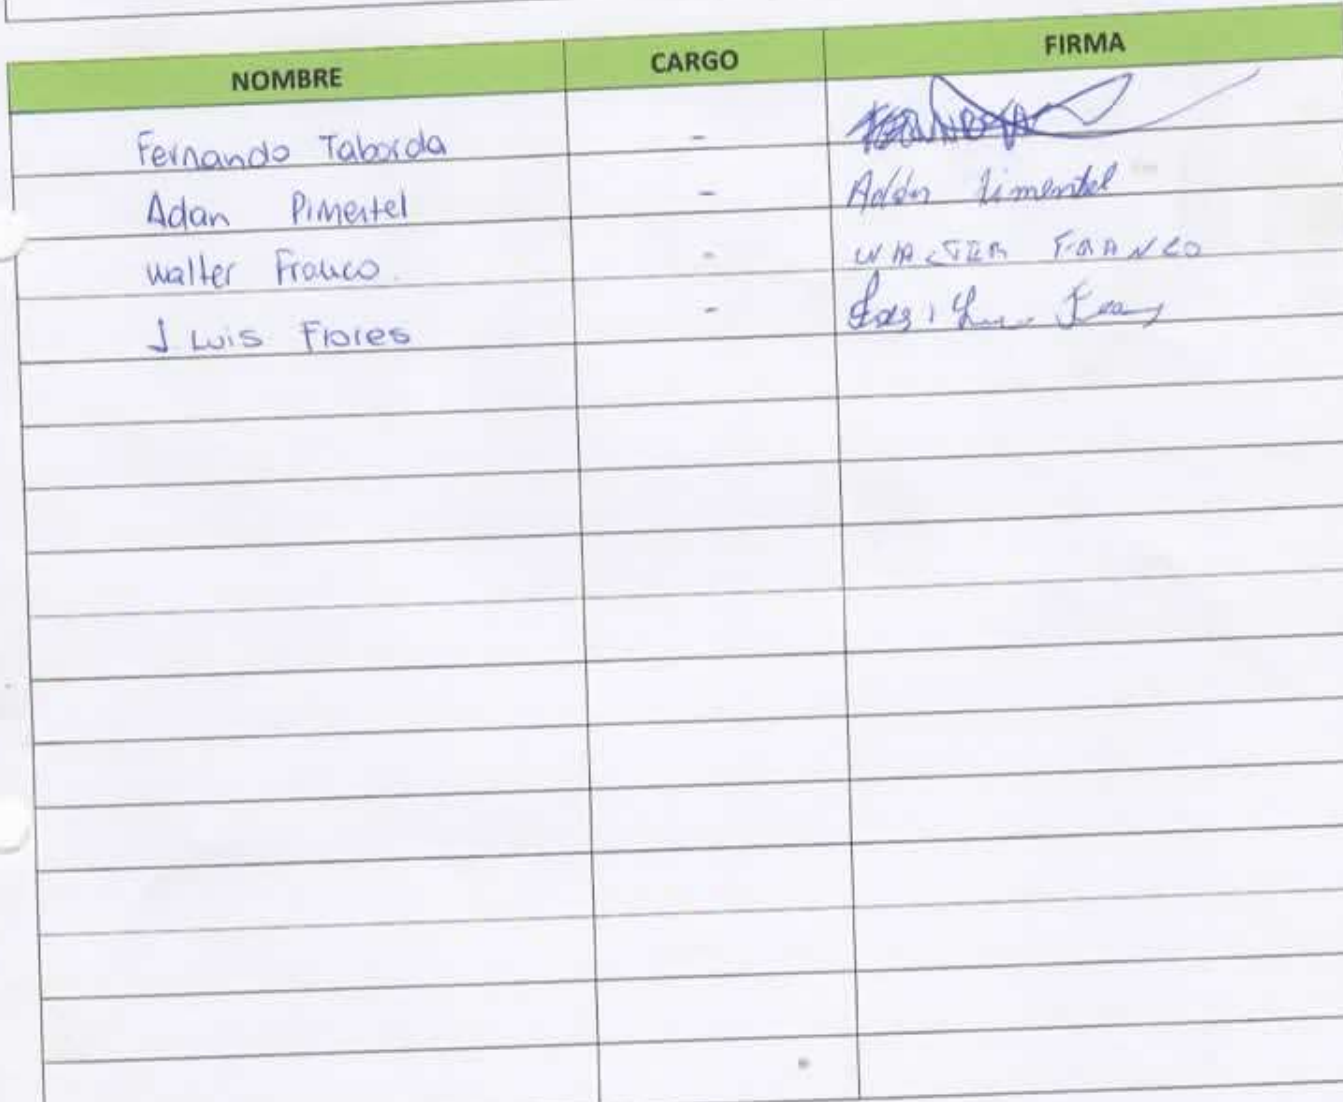 NOMBRE CARGO FIRMA
Fernando Taborda -
Adan Pimentel - Adán Pimentel
Walter Franco. - WALTER FRANCO
J Luis Flores -